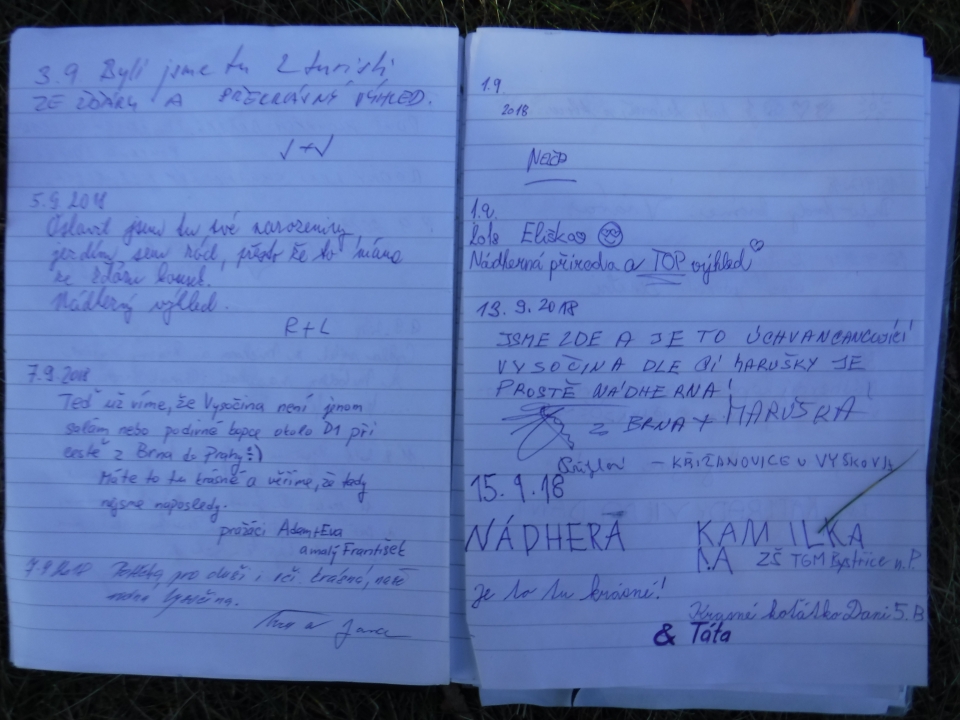 3.9 Byli jsme tu 2 turisti
ZE ŽĎÁRU A PŘEKRÁSNÝ VÝHLED.
5.9.2018
Oslavit jsem tu své narozeniny,
jezdím sem rád, přesto že to máme
ze Žďáru kousek.
Nádherný výhled.
R+L
7.9.2018
Teď už víme, že Vysočina není jenom
salám nebo podivné kopce okolo D1 při
cestě z Brna do Prahy :)
Máte to tu krásné a věříme, že tady
nejsme naposledy.
pražáci Adam+Eva
a malý František
7.9.2018 pro duši i oči. krásná, naše
Vysočina.
1.9.
2018
1.9.
2018 Eliška
Nádherná příroda a TOP výhled
13.9.2018
JSME ZDE A JE TO ÚCHVANCANCUJÍCÍ
VYSOČINA DLE MARUŠKY JE
PROSTĚ NÁDHERNA!
Z BRNA + MARUŠKA!
- KŘIŽANOVICE U VYŠKOVA
15.9.18
NÁDHERA KAMILKA
ZŠ TGM Bystřice n.P.
je to tu krásné!
Krásné koťátko Dani 5.B
& Táta